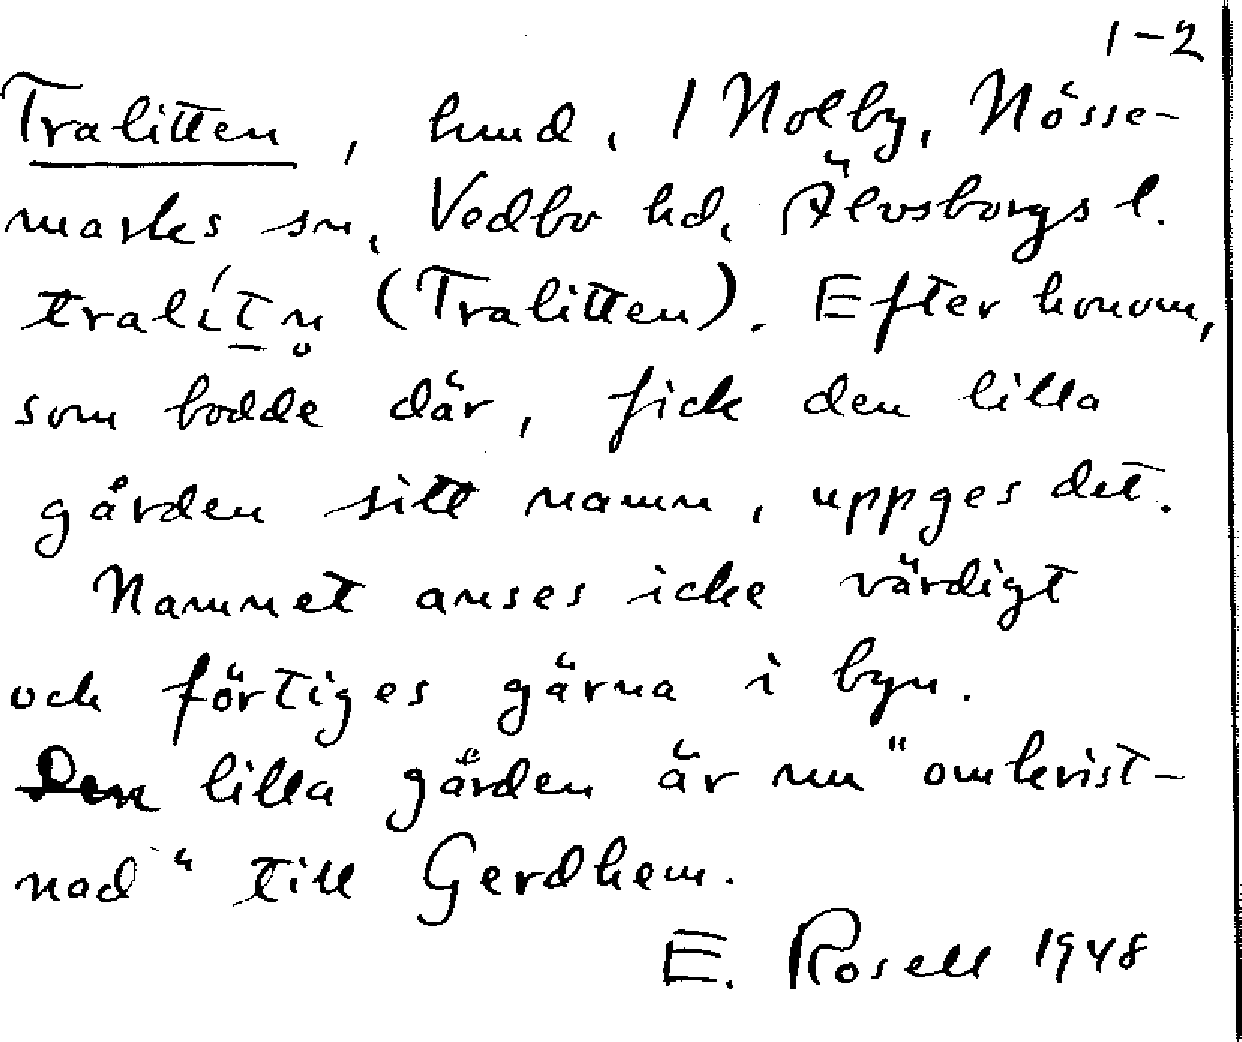 1-2
Tralitten, hund, 1 Nolby, Nösse-
marks sn, Vedbo hd, Älvsborgs l.
tralítn̥ (Tralitten). Efter honom,
som bodde där, fick den lilla
gården sitt namn, uppges det.
Namnet anses icke värdigt
och förtiges gärna i byn.
Den lilla gården är nu "omkrist-
nad" till Gerdhem.
E. Rosell 1948